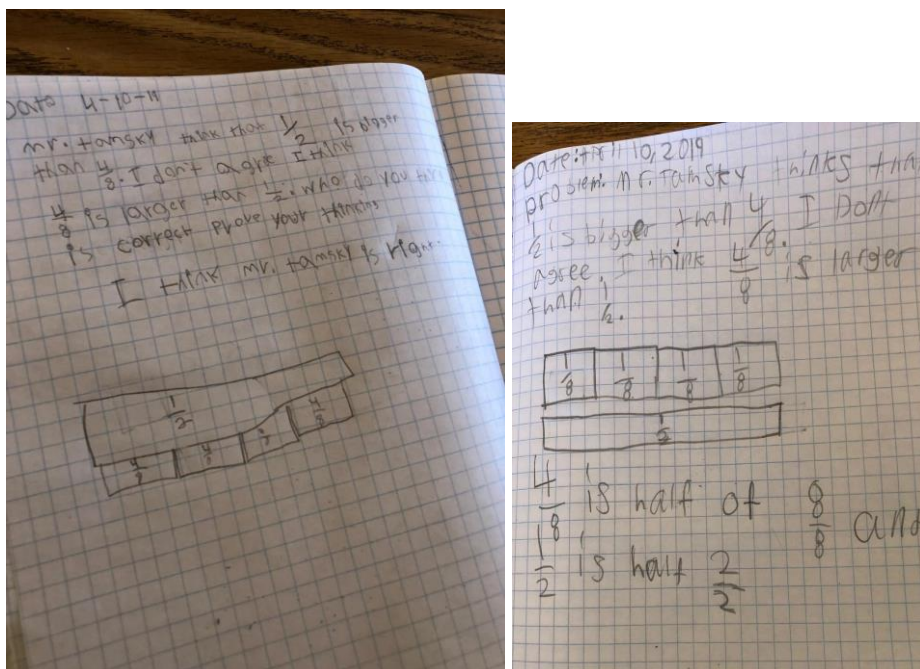 Date 4-10-19
mr. tamsky think that 1/2 is bigger
than 4/8. I don't agre I think
4/8 is larger than 1/2. who do you think
is correct prove your thinking
I think mr. tamsky is right.
1/2
4/8
Date: April 10, 2019
problem: Mr. Tamsky thinks that
1/2 is bigger than 4/8. I Dont
agree. I think 4/8 is larger
than 1/2.
1/8 1/8 1/8 1/8
1/2
4/8 is half of 8/8 and
1/2 is half 2/2